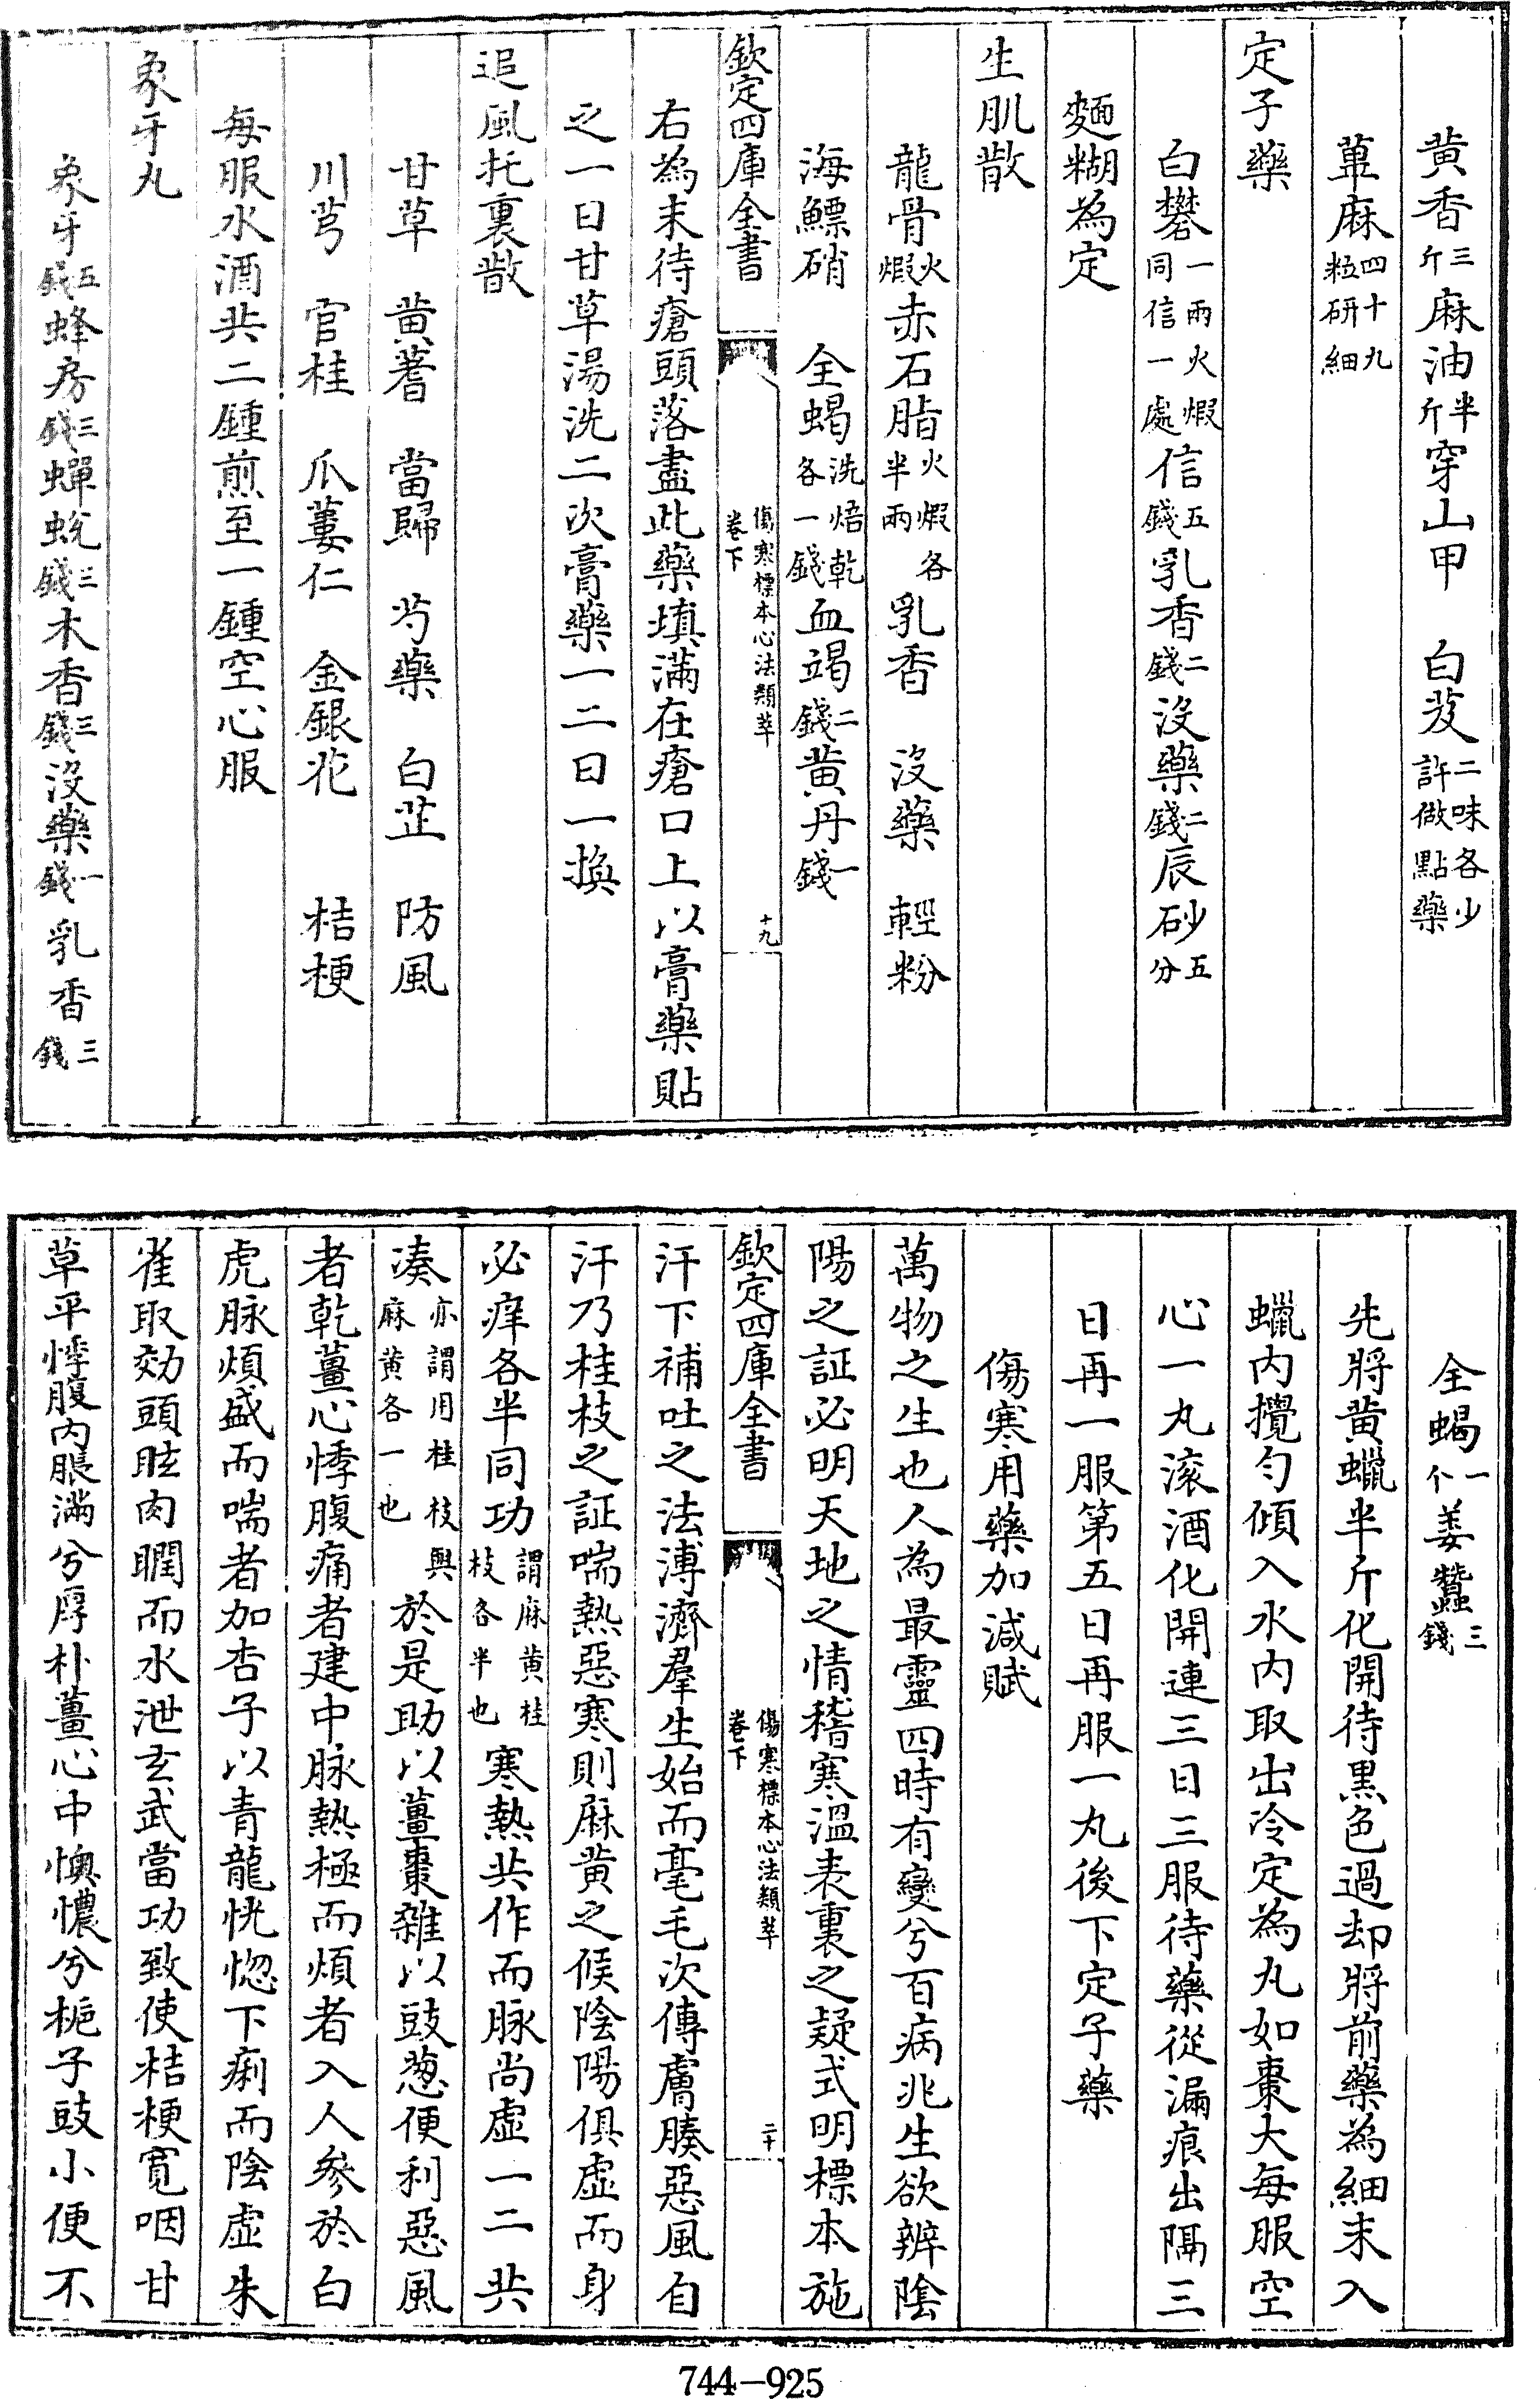 黄香三斤麻油半斤穿山甲　白芨二味各少許做點藥
草麻四十九粒研細
定子藥
白礬一兩火煆同信一處信五錢乳香二錢沒藥二錢辰砂五分
麵糊為定
生肌散
龍骨火煆赤石脂火煆各半兩乳香　沒藥　輕粉
海鰾硝　全蝎洗焙乾各一錢血竭二錢黄丹一錢
欽定四庫全書　傷寒標本心法類萃卷下　十九
右為末待瘡頭落盡此藥填滿在瘡口上以膏藥貼
之一日甘草湯洗二次膏藥一二日一換
追風托裏散
甘草　黄蓍　當歸　芍藥　白芷　防風
川芎　官桂　瓜蔞仁　金銀花　桔梗
每服水酒共二鍾煎至一鍾空心服
象牙丸
象牙五錢蜂房三錢蟬蛻三錢木香三錢沒藥一錢乳香三錢
全蝎一个姜蠶三錢
先將黄蠟半斤化開待黒色過却將前藥為細末入
蠟内攪勻傾入水内取出冷定為丸如棗大每服空
心一丸滚酒化開連三日三服待藥從漏痕出隔三
日再一服第五日再服一丸後下定子藥
傷寒用藥加減賦
萬物之生也人為最靈四時有變兮百病兆生欲辨陰
陽之証必明天地之情稽寒溫表裏之疑式明標本施
欽定四庫全書　傷寒標本心法類萃卷下　二十
汗下補吐之法溥濟羣生始而毫毛次傳膚腠惡風自
汗乃桂枝之証喘熱惡寒則麻黄之候陰陽俱虚而身
必痒各半同功謂麻黄桂枝各半也寒熱共作而脉尚虚一二共
凑亦謂用桂枝與麻黄各一也於是助以薑棗雜以豉葱便利惡風
者乾薑心悸腹痛者建中脉熱極而煩者入人參於白
虎脉煩盛而喘者加杏子以青龍恍惚下痢而陰虚朱
雀取効頭眩肉瞤而水泄玄武當功致使桔梗寛咽甘
草平悸腹内脹滿兮厚朴薑心中懊憹兮梔子豉小便不
744-925